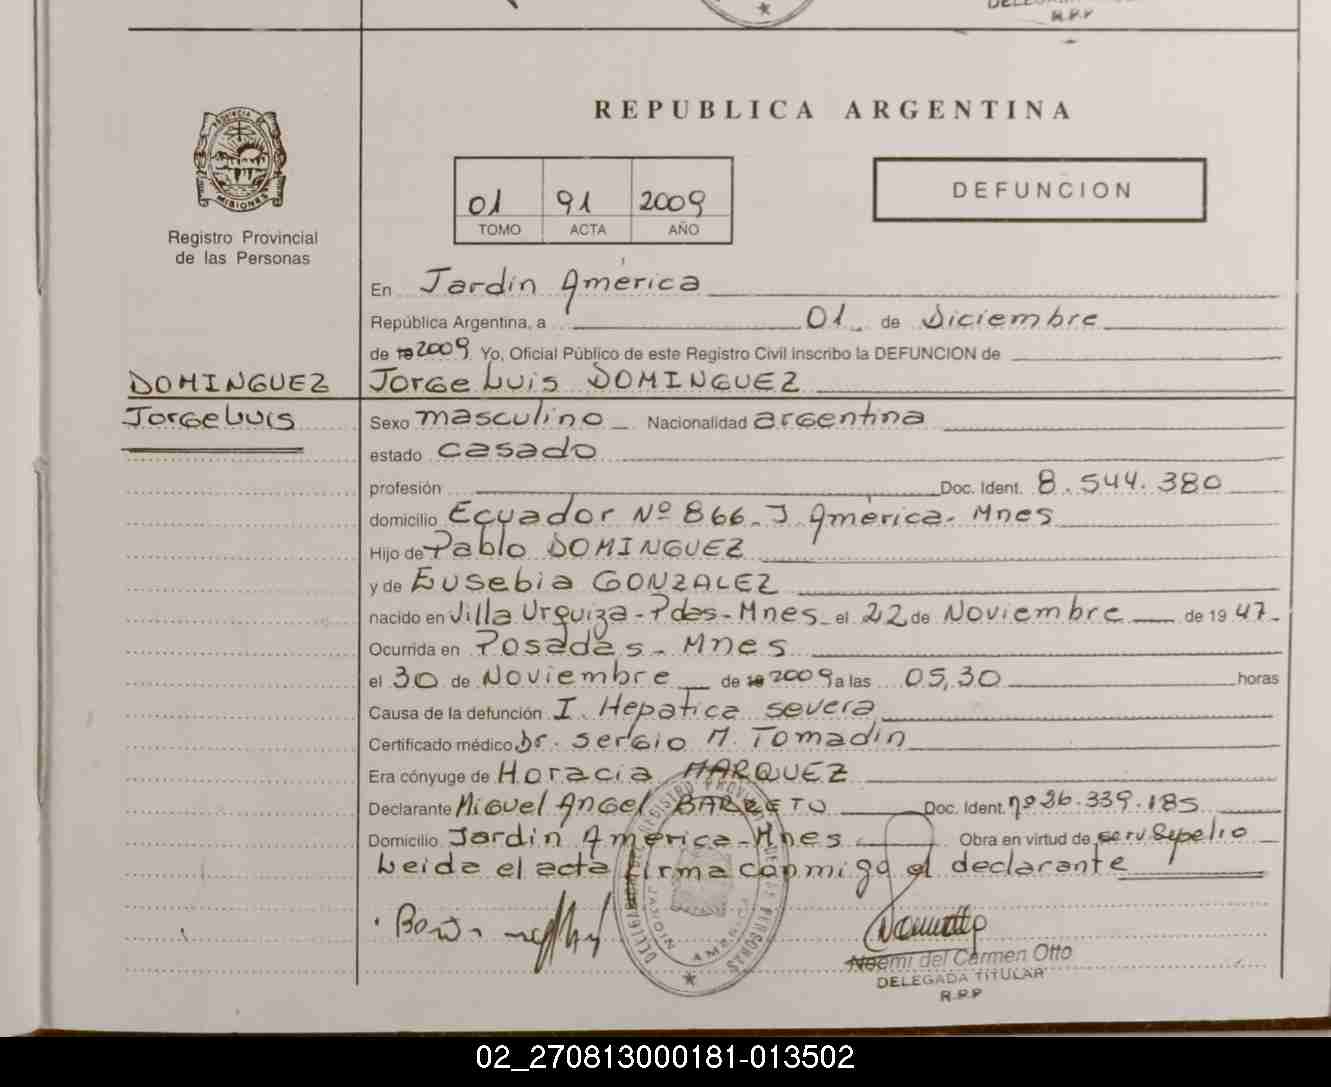 R.P.P
REPUBLICA ARGENTINA
PROVINCIA DE
MISIONES
Registro Provincial
de las Personas
01 91 2009
TOMO ACTA AÑO
DEFUNCION
En Jardín América
República Argentina, a 01 de Diciembre
de 19 2009 Yo, Oficial Público de este Registro Civil inscribo la DEFUNCION de
DOMINGUEZ Jorge Luis DOMINGUEZ
Jorge Luis Sexo masculino Nacionalidad argentina
estado casado
profesión Doc. Ident. 8.544.380
domicilio Ecuador Nº 866. J. América - Mnes
Hijo de Pablo DOMINGUEZ
y de Eusebia GONZALEZ
nacido en Villa Urquiza - Pdas - Mnes el 22 de Noviembre de 19 47.
Ocurrida en Posadas - Mnes
el 30 de Noviembre de 19 2009 a las 05,30 horas
Causa de la defunción I. Hepatica severa
Certificado médico Dr. Sergio M. Tomadin
Era cónyuge de Horacia MARQUEZ
Declarante Miguel Angel BARRETO Doc. Ident. nº 26.339.185
Domicilio Jardín América - Mnes Obra en virtud de serv Sepelio
Leida el acta firma conmigo el declarante
Noemi del Carmen Otto
DELEGADA TITULAR
R.P.P
02_270813000181-013502